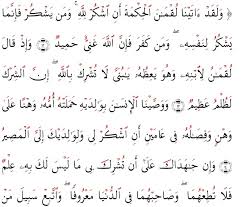 ﴿ وَلَقَدْ ءَاتَيْنَا لُقْمَٰنَ ٱلْحِكْمَةَ أَنِ ٱشْكُرْ لِلَّهِ ۚ وَمَن يَشْكُرْ فَإِنَّمَا
يَشْكُرُ لِنَفْسِهِۦ ۖ وَمَن كَفَرَ فَإِنَّ ٱللَّهَ غَنِىٌّ حَمِيدٌ ۝ وَإِذْ قَالَ
لُقْمَٰنُ لِٱبْنِهِۦ وَهُوَ يَعِظُهُۥ يَٰبُنَىَّ لَا تُشْرِكْ بِٱللَّهِ ۖ إِنَّ ٱلشِّرْكَ
لَظُلْمٌ عَظِيمٌ ۝ وَوَصَّيْنَا ٱلْإِنسَٰنَ بِوَٰلِدَيْهِ حَمَلَتْهُ أُمُّهُۥ وَهْنًا عَلَىٰ
وَهْنٍ وَفِصَٰلُهُۥ فِى عَامَيْنِ أَنِ ٱشْكُرْ لِى وَلِوَٰلِدَيْكَ إِلَىَّ ٱلْمَصِيرُ
۝ وَإِن جَٰهَدَاكَ عَلَىٰٓ أَن تُشْرِكَ بِى مَا لَيْسَ لَكَ بِهِۦ عِلْمٌ
فَلَا تُطِعْهُمَا ۖ وَصَاحِبْهُمَا فِى ٱلدُّنْيَا مَعْرُوفًا ۖ وَٱتَّبِعْ سَبِيلَ مَنْ